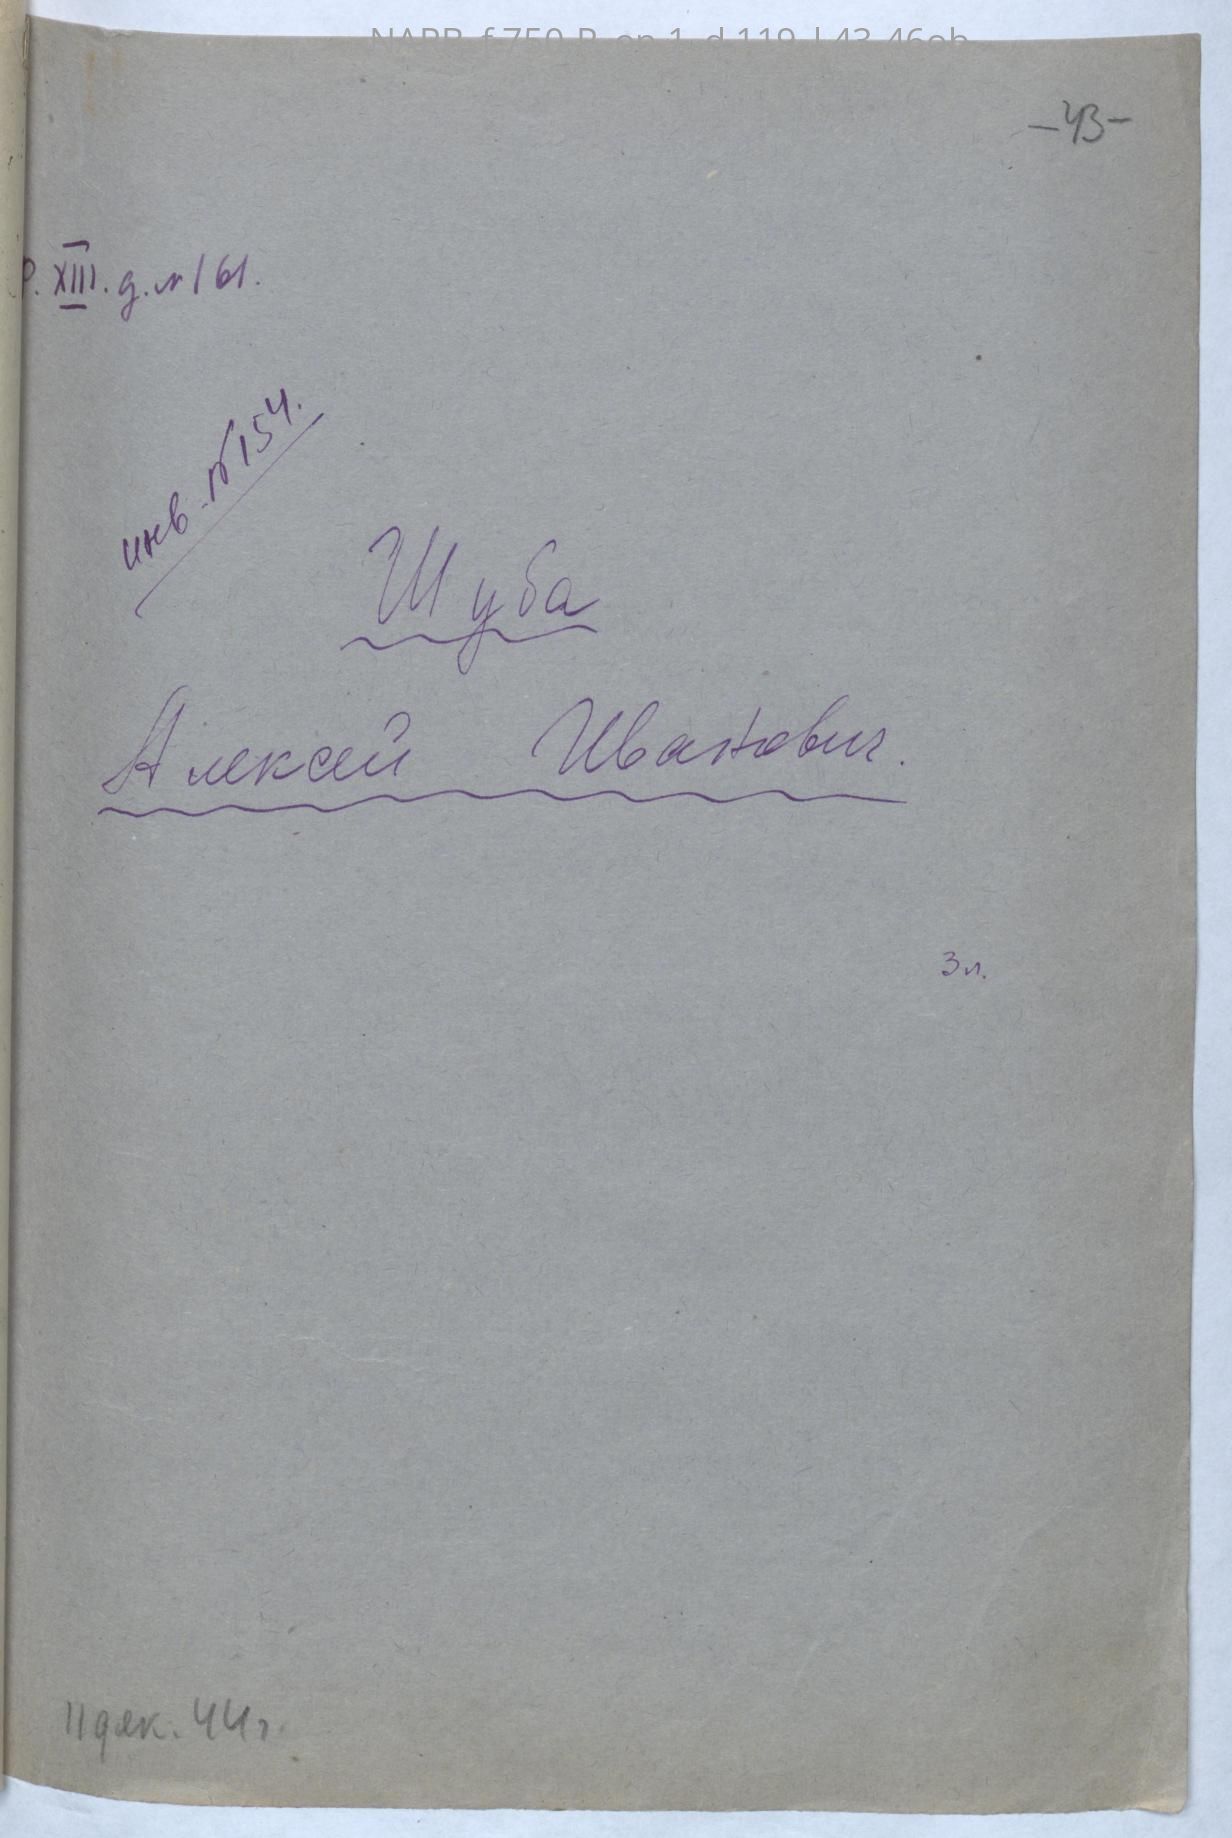 NARB_f.750-P_op.1_d.119_l.43-46ob
-43-
Р. XIII. д. № 161.
инв. № 154.
Шуба
Алексей Иванович.
3 л.
11 дек. 44 г.